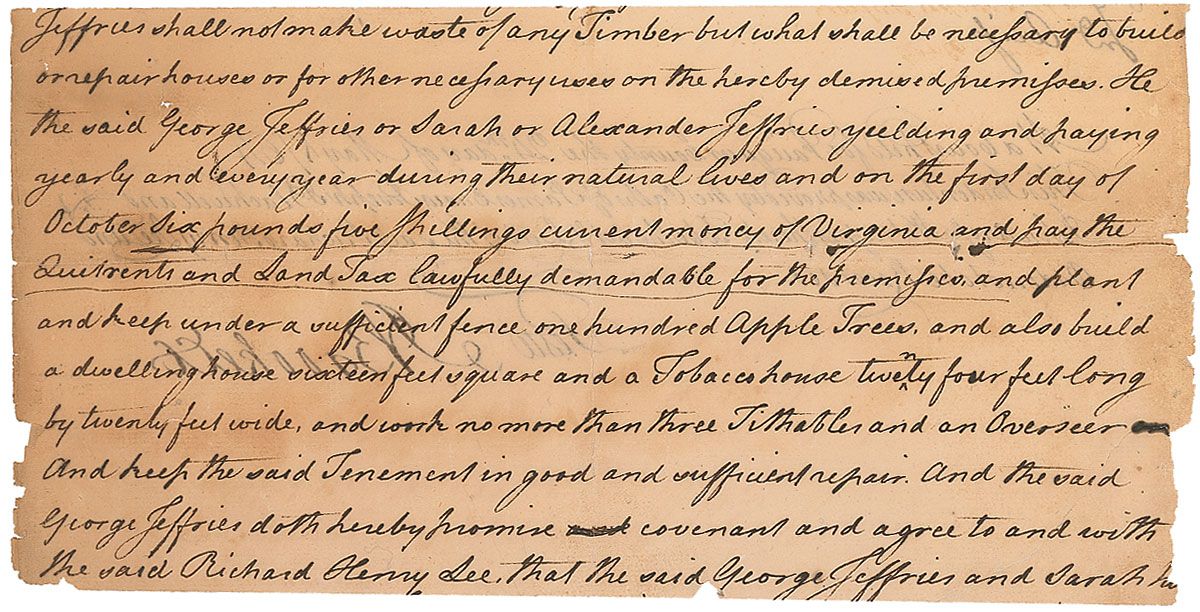 Jeffries shall not make waste of any Timber but what shall be necessary to build
or repair houses or for other necessary uses on the hereby demised premisses. He
the said George Jeffries or Sarah or Alexander Jeffries yeilding and paying
yearly and every year during their natural lives and on the first day of
October Six pounds five shillings current money of Virginia and pay the
Quitrents and Land Tax lawfully demandable for the premisses, and plant
and keep under a sufficient fence one hundred Apple Trees, and also build
a dwelling house sixteen feet square and a Tobacco house twenty four feet long
by twenty feet wide, and work no more than three Tithables and an Overseer
And keep the said Tenement in good and sufficient repair. And the said
George Jeffries doth hereby promise covenant and agree to and with
the said Richard Henry Lee, that the said George Jeffries and Sarah